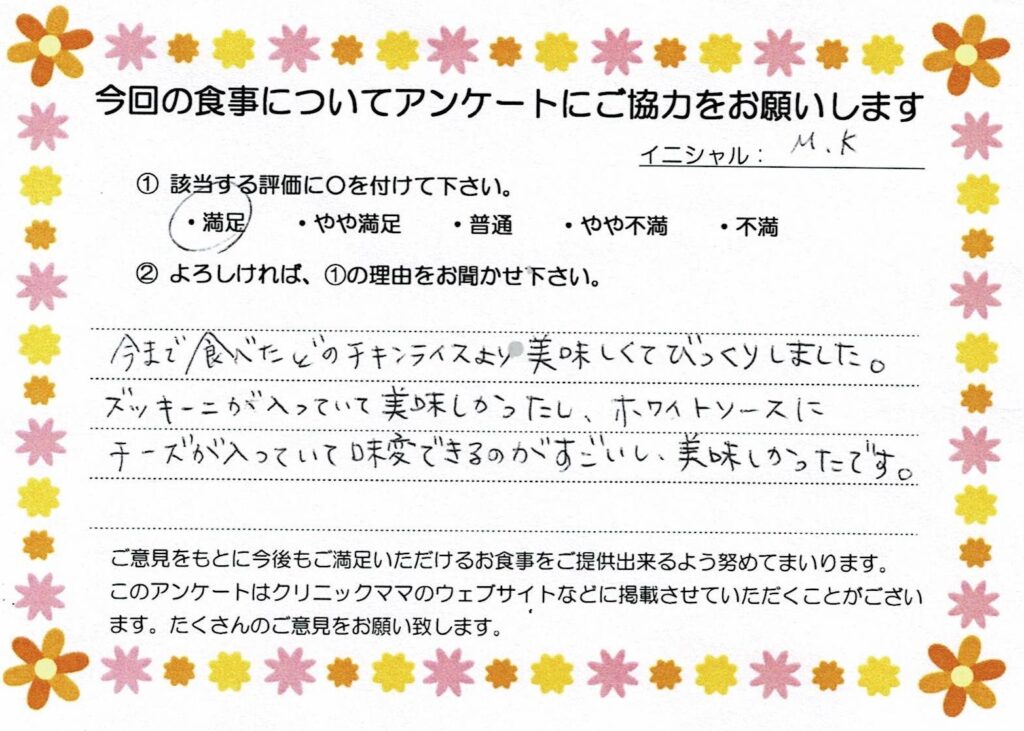 今回の食事についてアンケートにご協力をお願いします
イニシャル： M.K
① 該当する評価に〇を付けて下さい。
・満足 ・やや満足 ・普通 ・やや不満 ・不満
② よろしければ、①の理由をお聞かせ下さい。
今まで食べたどのチキンライスより美味しくてびっくりしました。
ズッキーニが入っていて美味しかったし、ホワイトソースに
チーズが入っていて味変できるのがすごいし、美味しかったです。
ご意見をもとに今後もご満足いただけるお食事をご提供出来るよう努めてまいります。
このアンケートはクリニックママのウェブサイトなどに掲載させていただくことがござい
ます。たくさんのご意見をお願い致します。